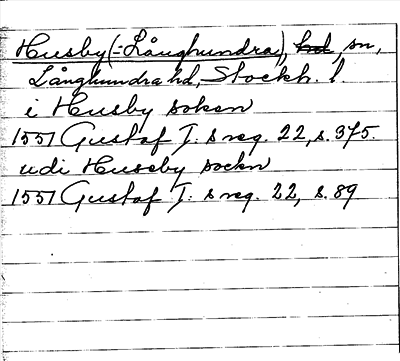 Husby (-Långhundra), hd, sn,
Långhundra hd, Stockh. l.
i Husby soken
1551 Gustaf I: s reg. 22, s. 375.
udi Huseby sockn
1551 Gustaf I: s reg. 22, s. 89